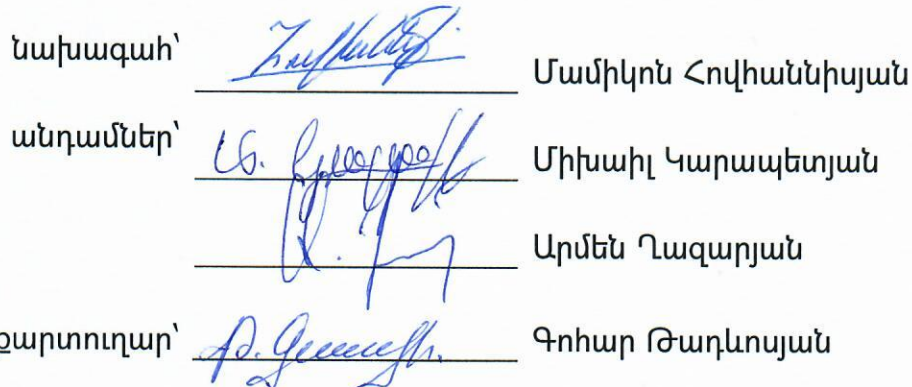 նախագահ՝ Մամիկոն Հովհաննիսյան
անդամներ՝ Միխաիլ Կարապետյան
Արմեն Ղազարյան
քարտուղար՝ Գոհար Թադևոսյան